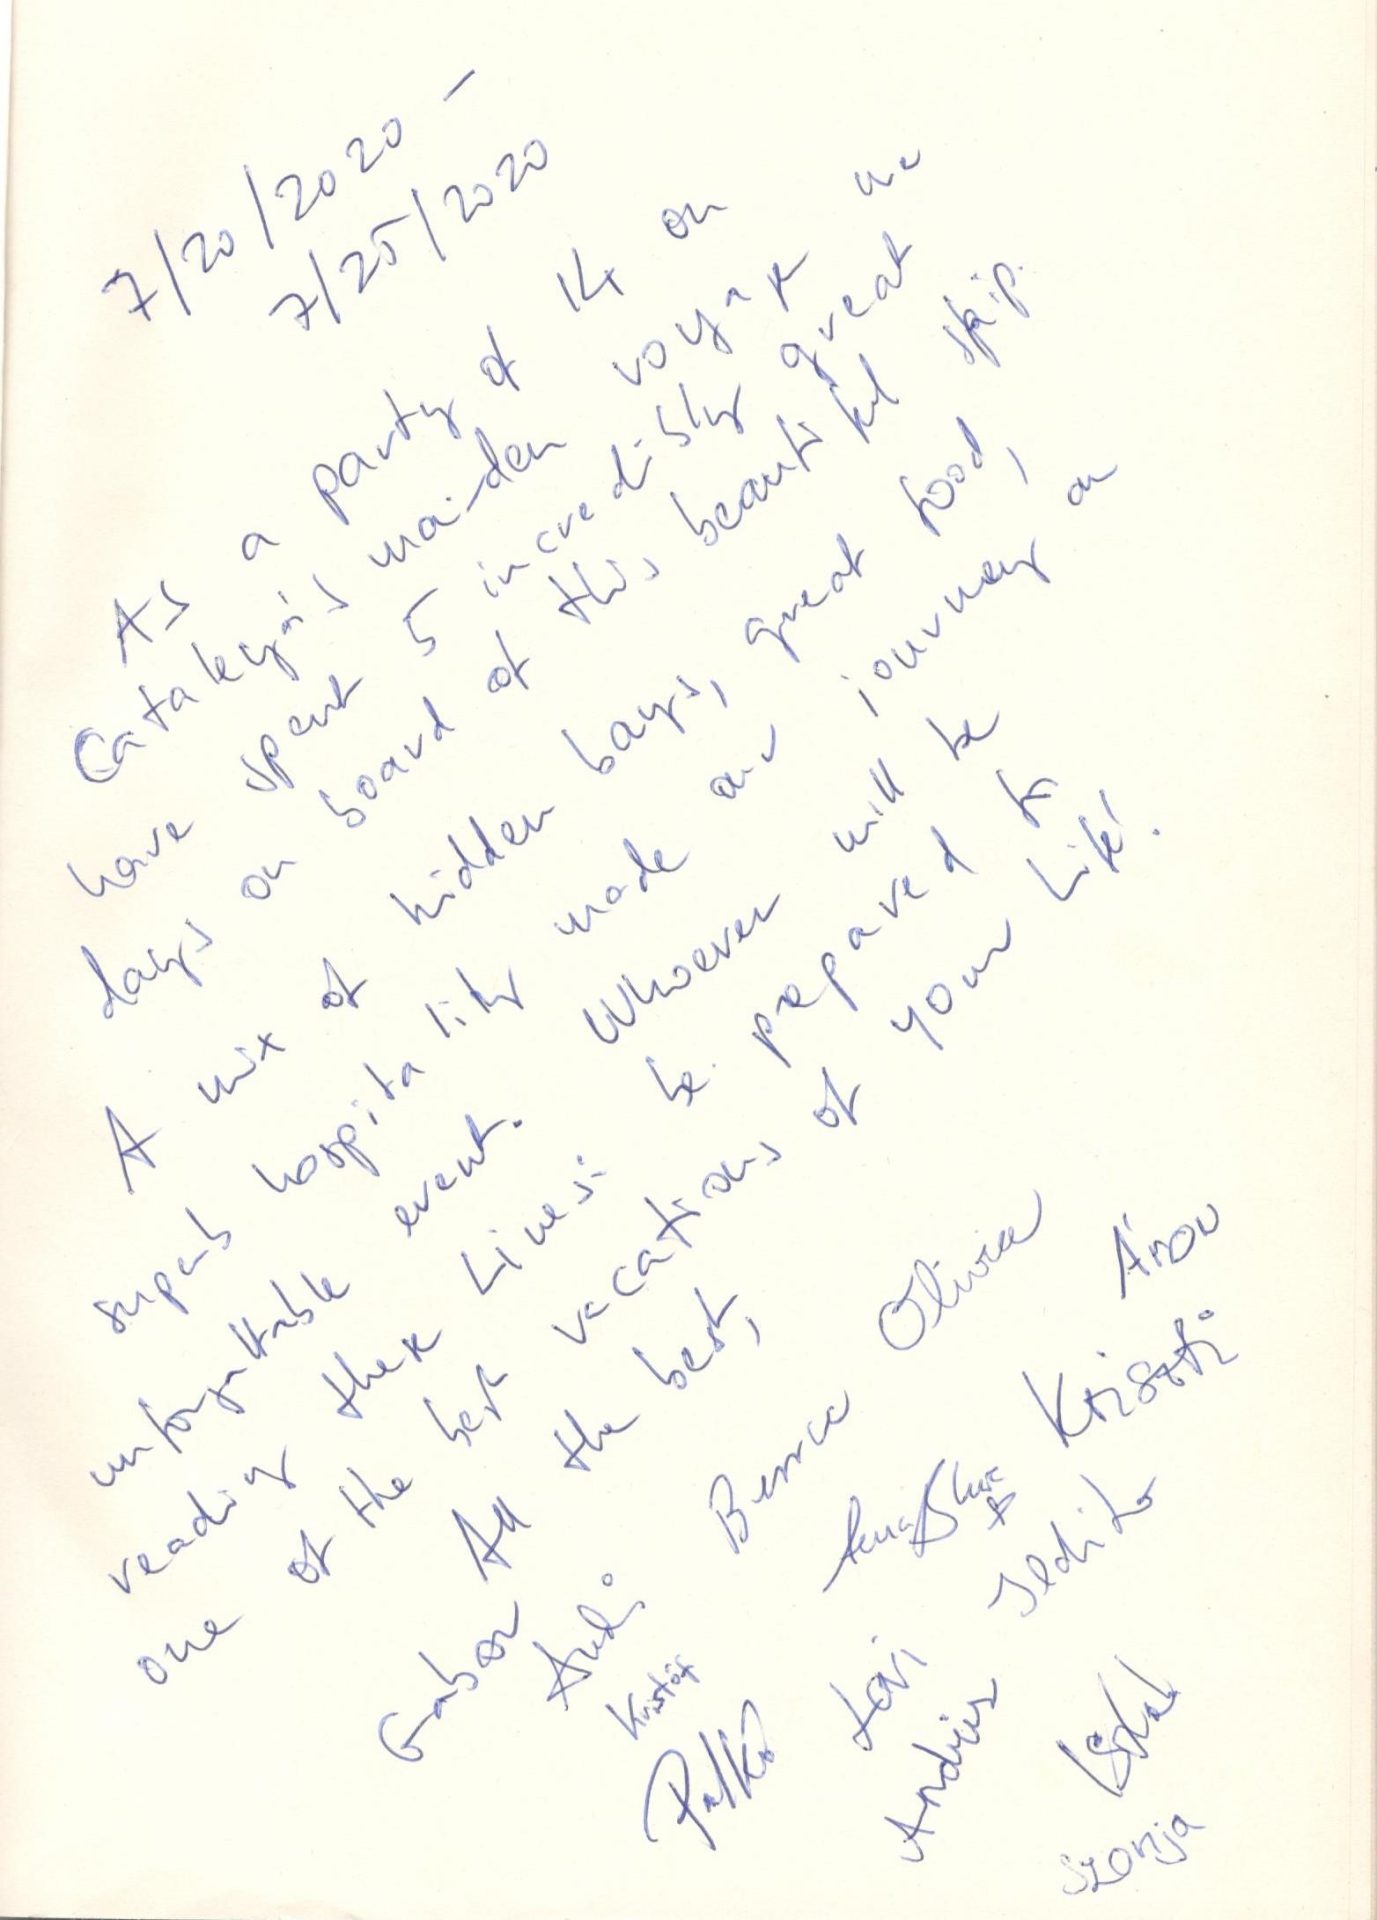 7/20/2020 -
7/25/2020
As a party of 14 on
Cataleya's maiden voyage we
have spent 5 incredibly great
days on board of this beautiful ship.
A mix of hidden bays, great food,
superb hospitality made our journey an
unforgettable event. Whoever will be
reading these lines: be prepared to
one of the best vacations of your life!
All the best,
Gabor Andi Bence Olivia Áron
Kristóf Kriszti
Palkó Lori Ildiko
András
Szonja